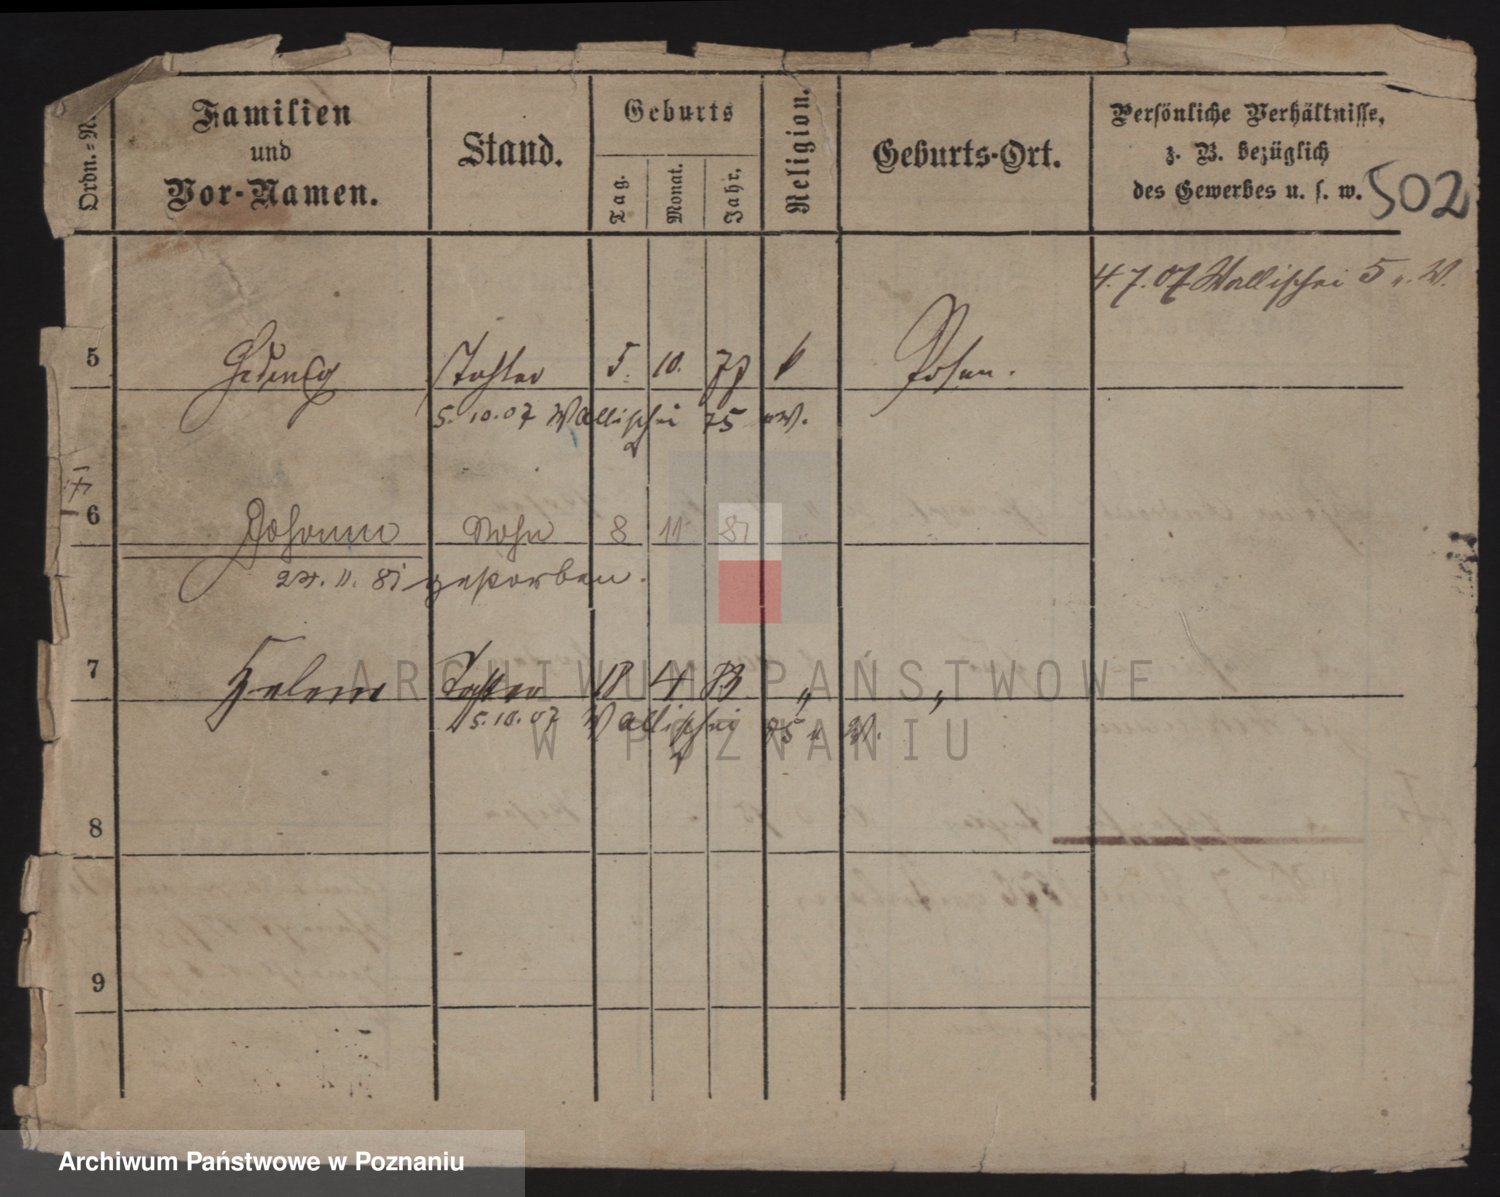 Ordn.=N.
Familien
und
Vor-Namen.
Stand.
Geburts
Tag.
Monat.
Jahr.
Religion.
Geburts-Ort.
Persönliche Verhältnisse,
z. B. bezüglich
des Gewerbes u. s. w.
502
4.7.07 Wallischei 5 u. W.
5 Hedwig Tochter 5 10. 79 k Posen.
5.10.07 Wallischei 75 u W.
6 Johann Sohn 8 11 81
24. 11. 81 gestorben.
7 Helene Tochter 18 4 83 " "
5.10.07 Wallischei 75 u W.
8
9
ARCHIWUM PAŃSTWOWE
W POZNANIU
Archiwum Państwowe w Poznaniu